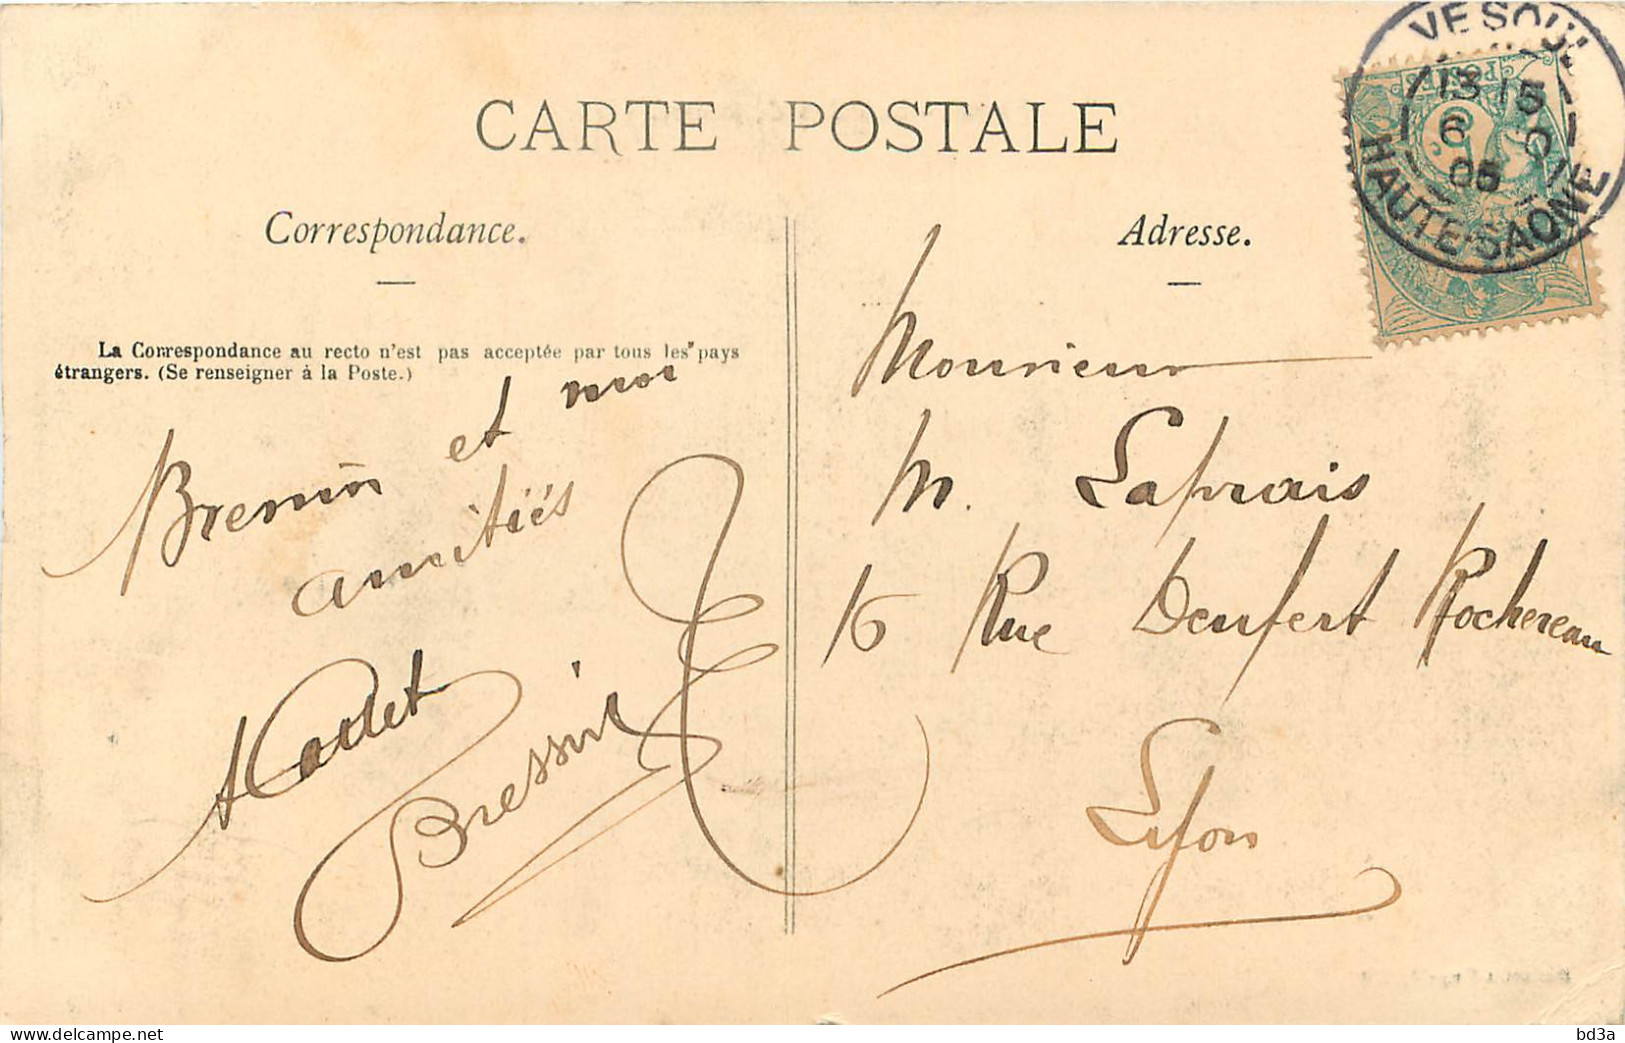 CARTE POSTALE
Correspondance.
Adresse.
La Correspondance au recto n'est pas acceptée par tous les pays
étrangers. (Se renseigner à la Poste.)
et moi
amitiés
Monsieur
M. Laprais
16 Rue Denfert Rochereau
Lyon
VESOUL
13 15
6
HAUTE-SAONE
POSTES
bd3a